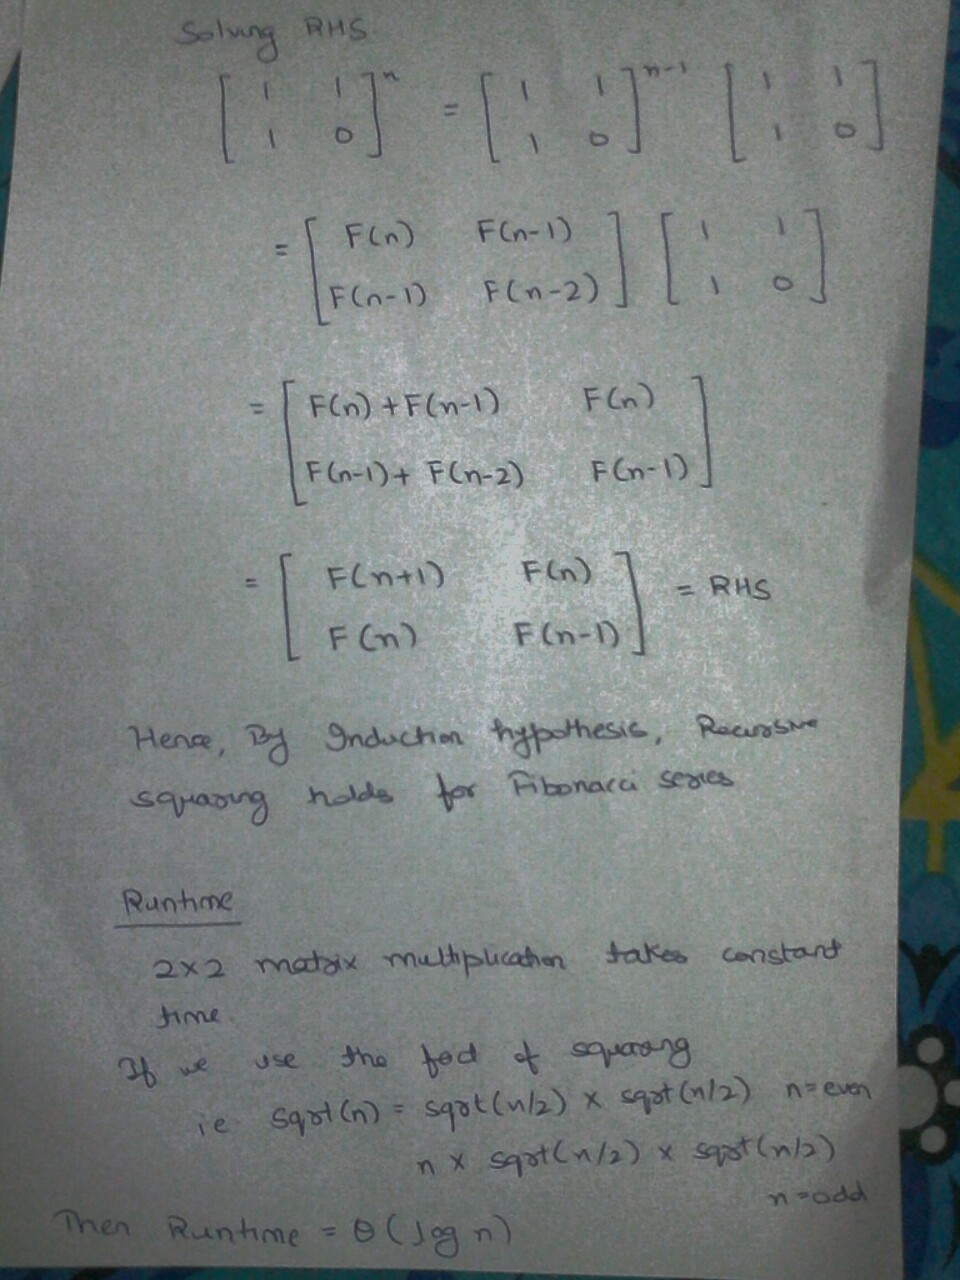 Solving RHS
[ 1 1 ]ⁿ = [ 1 1 ]ⁿ⁻¹ [ 1 1 ]
[ 1 0 ] [ 1 0 ] [ 1 0 ]
= [ F(n) F(n-1) ] [ 1 1 ]
[ F(n-1) F(n-2) ] [ 1 0 ]
= [ F(n) + F(n-1) F(n) ]
[ F(n-1) + F(n-2) F(n-1) ]
= [ F(n+1) F(n) ] = RHS
[ F(n) F(n-1) ]
Hence, By Induction hypothesis, Recursive
squaring holds for Fibonacci series
Runtime
2×2 matrix multiplication takes constant
time.
If we use the of squaring
ie sqrt(n) = sqrt(n/2) × sqrt(n/2) n=even
n × sqrt(n/2) × sqrt(n/2)
n=odd
Then Runtime = θ(log n)